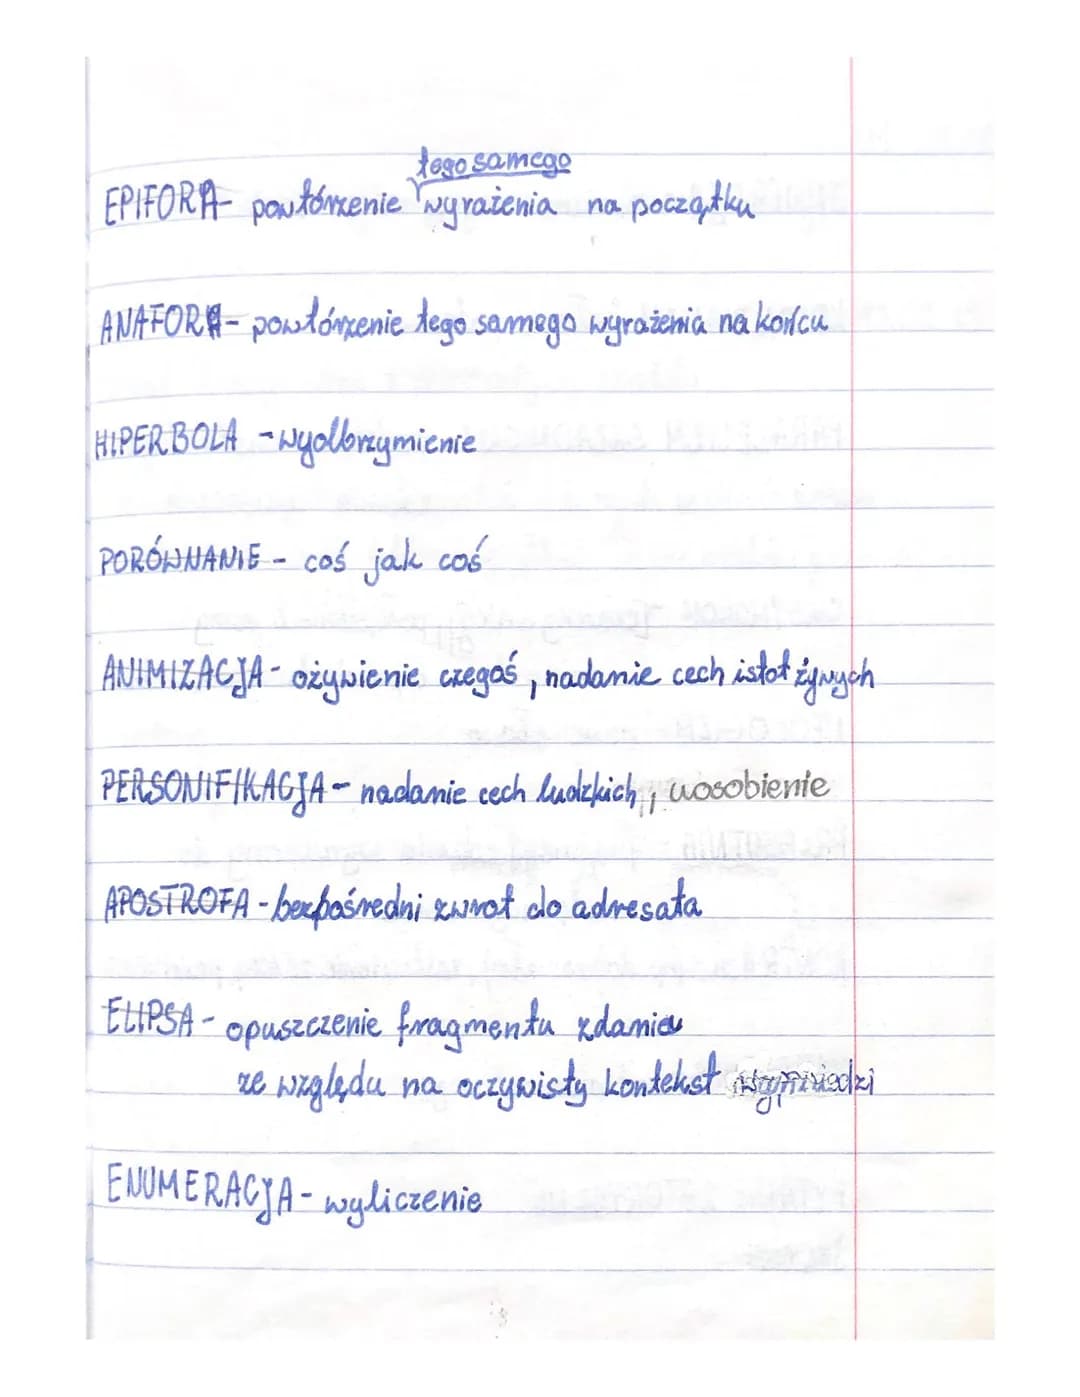 tego samego
EPIFORA- powtórzenie wyrażenia na początku
ANAFORA- powtórzenie tego samego wyrażenia na końcu
HIPERBOLA -wyolbrzymienie
PORÓWNANIE - coś jak coś
ANIMIZACJA- ożywienie czegoś, nadanie cech istot żywych
PERSONIFIKACJA- nadanie cech ludzkich, uosobienie
APOSTROFA-bezpośredni zwrot do adresata
ELIPSA- opuszczenie fragmentu zdania
ze względu na oczywisty kontekst wypowiedzi
ENUMERACJA- wyliczenie